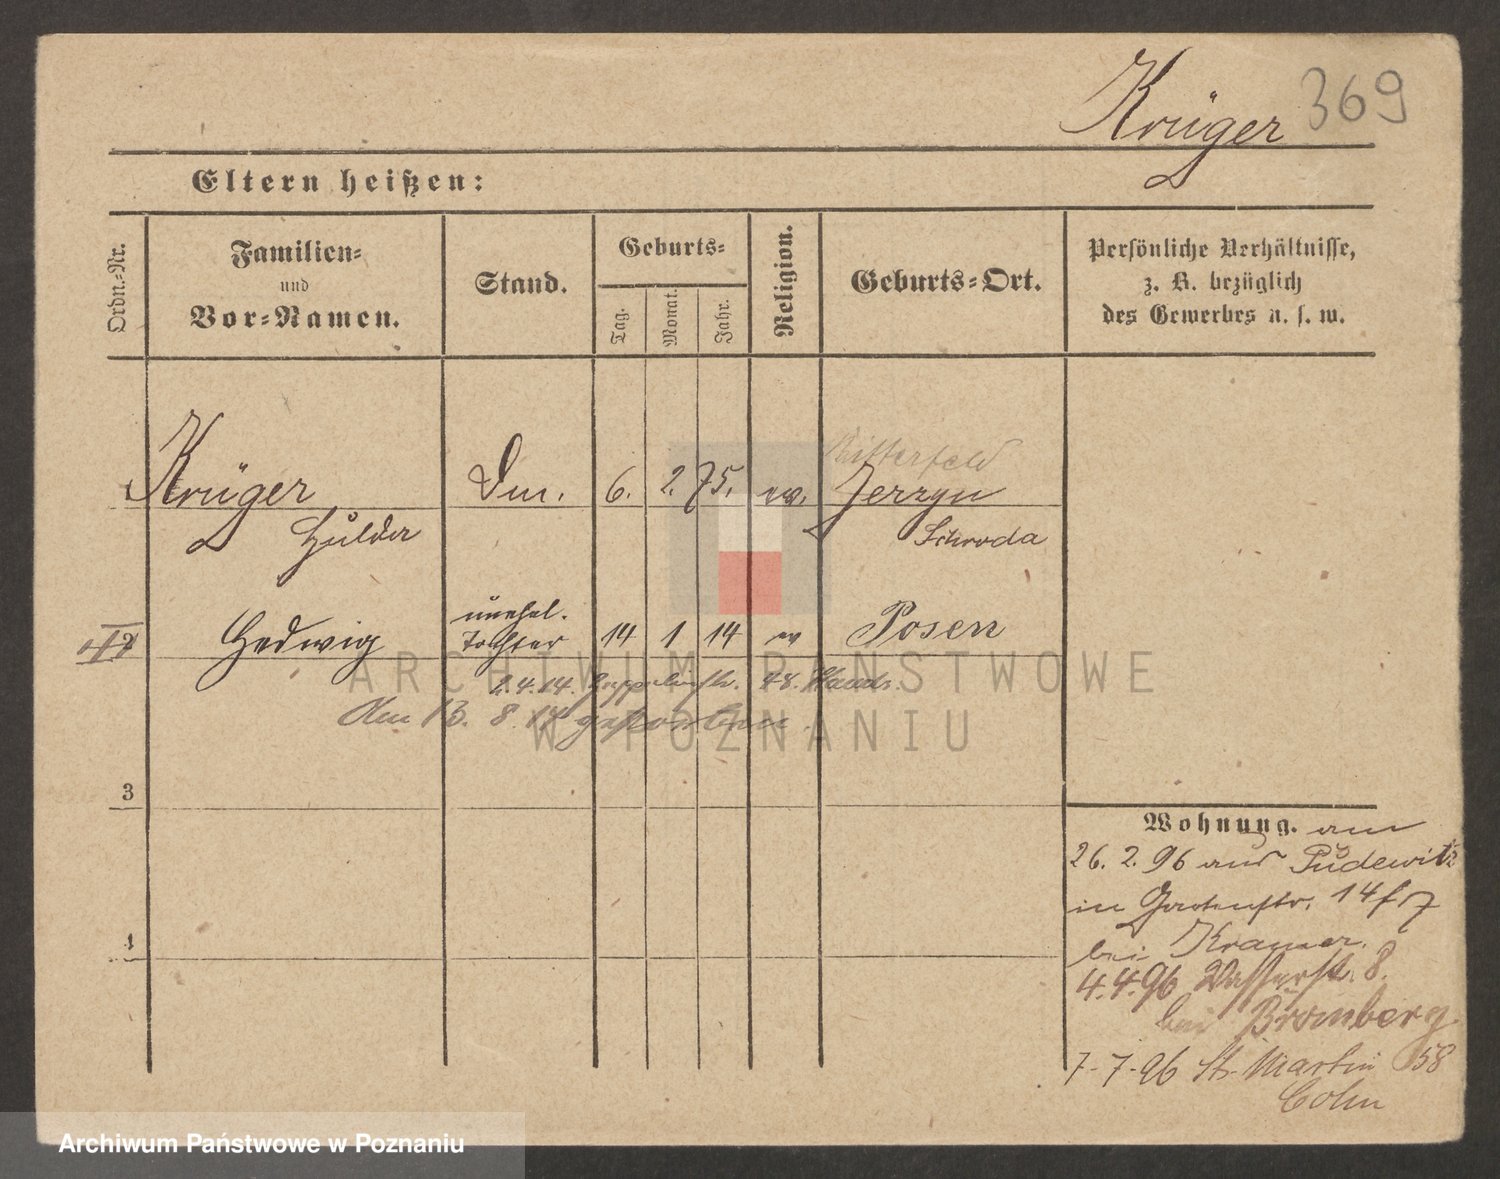 Krüger 369
Eltern heißen:
Ordn.-Nr.
Familien-
und
Vor-Namen.
Stand.
Geburts-
Tag.
Monat.
Jahr.
Religion.
Geburts-Ort.
Persönliche Verhältnisse,
z. B. bezüglich
des Gewerbes u. s. w.
Bitterfeld
1 Krüger 6. 2. 75. ev. Jerzyn
Hulda Schroda
unehel.
2 Hedwig Tochter 14 1 14 ev Posen
2.4.14. 48.
Am 13. 8. gestorben.
3
4
Wohnung. am
26. 2. 96 aus Pudewitz
in Gartenstr. 14
bei Kramer.
4.4.96 Wasserstr. 8.
bei Bromberg.
7-7-96 St. Martin 58
Cohn
ARCHIWUM PAŃSTWOWE
W POZNANIU
Archiwum Państwowe w Poznaniu